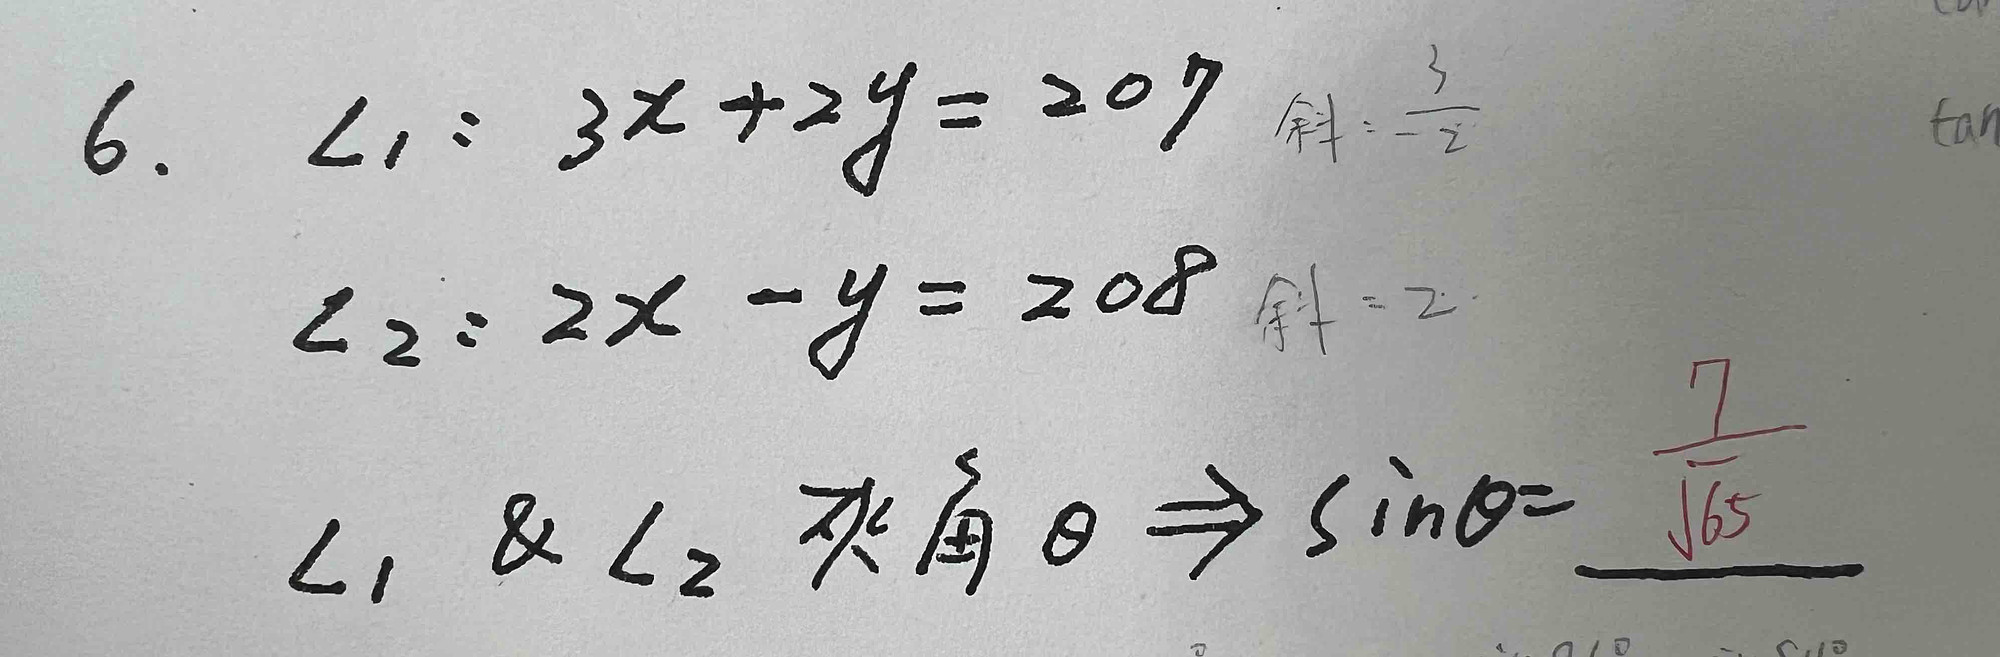 6. L₁: 3x+2y=207 斜:3/-2
L₂: 2x-y=208 斜=2
L₁ & L₂ 夾角θ⇒sinθ=7/√65
tan